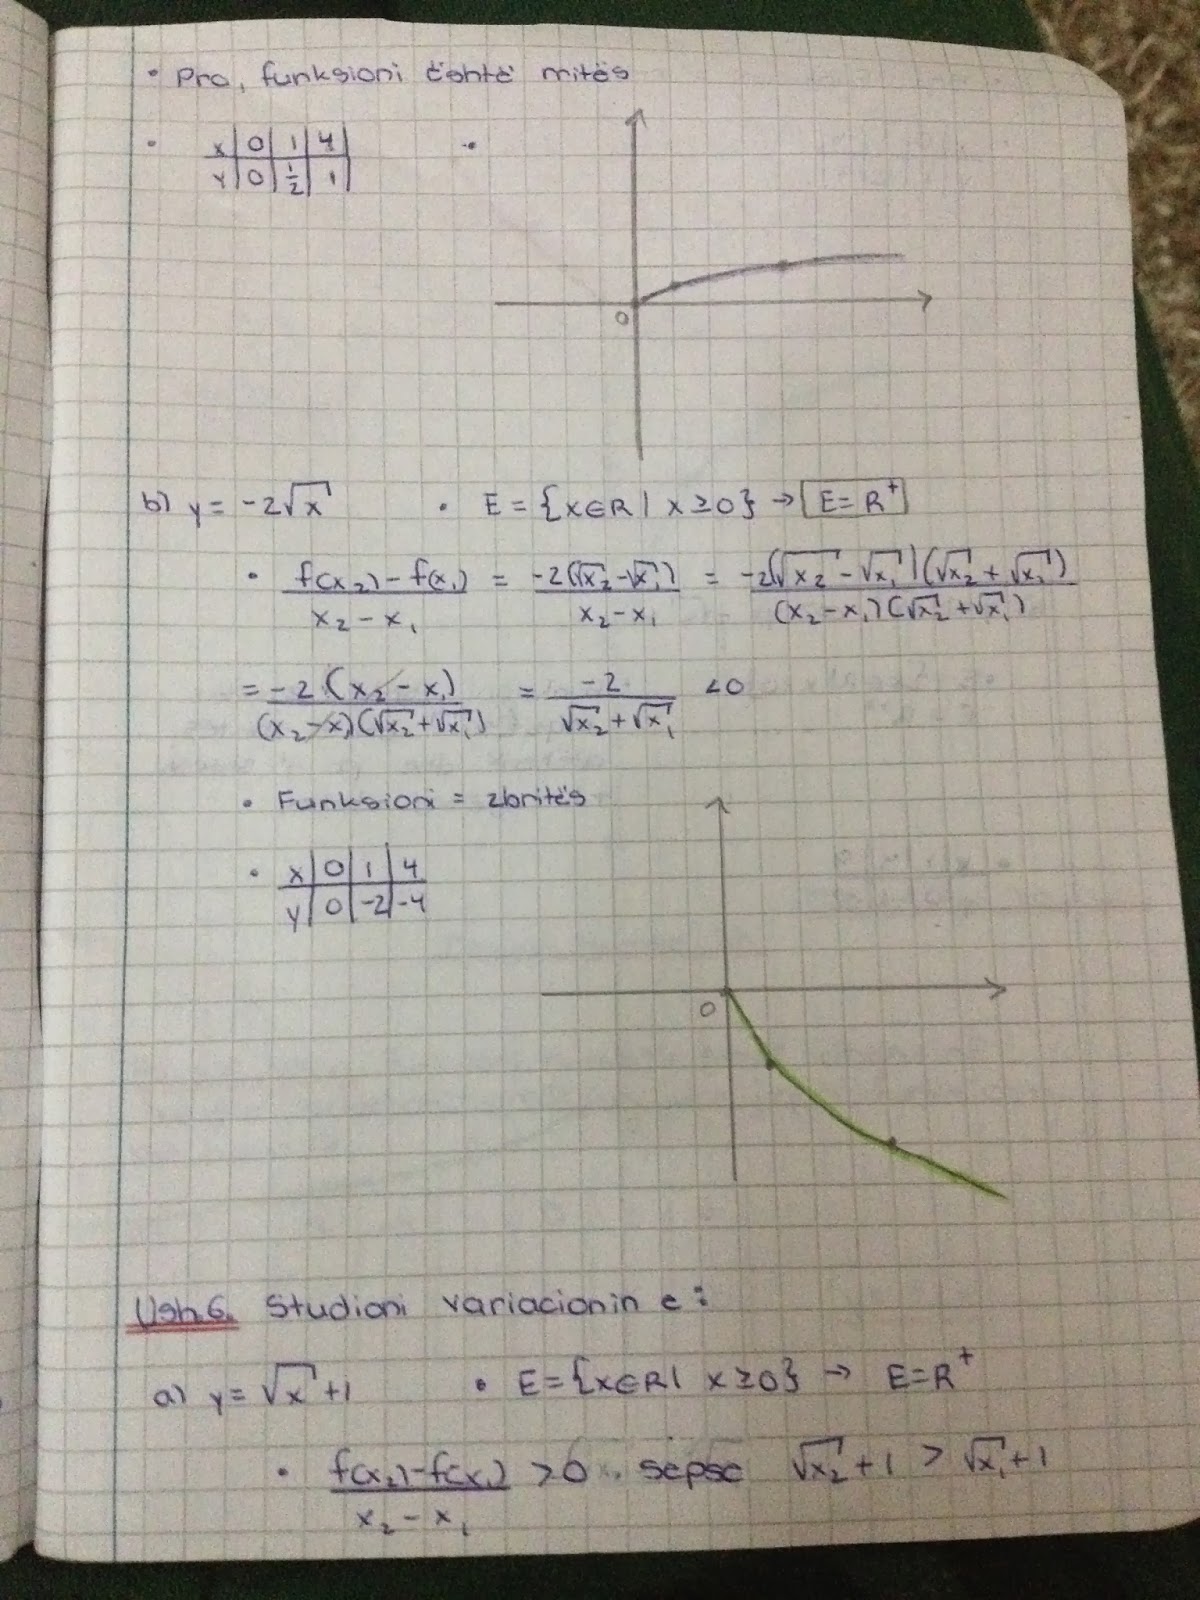 • Pra, funksioni është rritës
• x | 0 | 1 | 4 •
y | 0 | 1/2 | 1
0
b) y = -2√x • E = {x∈R | x ≥ 0} → E = R⁺
• f(x₂) - f(x₁) / x₂ - x₁ = -2(√x₂ - √x₁) / x₂ - x₁ = -2(√x₂ - √x₁)(√x₂ + √x₁) / (x₂ - x₁)(√x₂ + √x₁)
= -2(x₂ - x₁) / (x₂ - x₁)(√x₂ + √x₁) = -2 / √x₂ + √x₁ < 0
• Funksioni = zbritës
• x | 0 | 1 | 4
y | 0 | -2 | -4
0
Ush.6. Studioni variacionin e:
a) y = √x + 1 • E = {x∈R | x ≥ 0} → E = R⁺
• f(x₂) - f(x₁) / x₂ - x₁ > 0. sepse √x₂ + 1 > √x₁ + 1